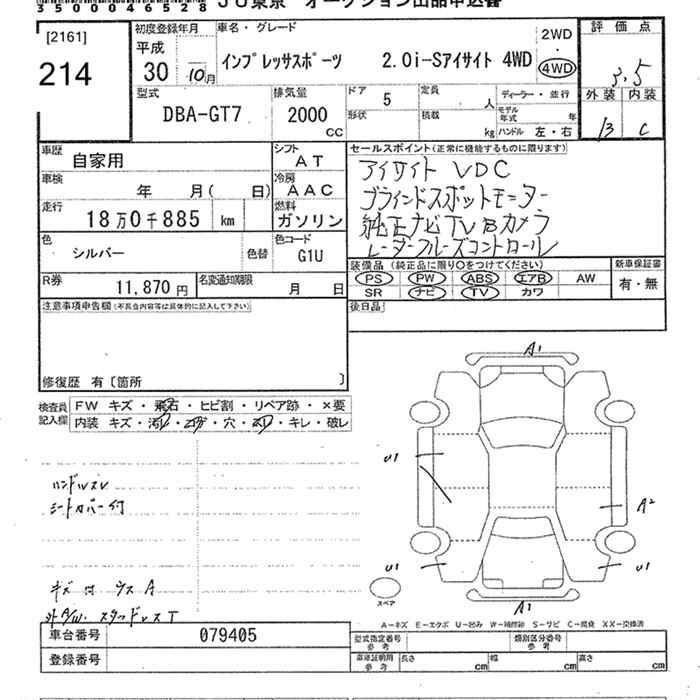 35000046528 JU東京 オークション出品申込書
[2161]
214
初度登録年月
平成
30 10月
車名・グレード
インプレッサスポーツ 2.0i-Sアイサイト 4WD
2WD
4WD
評価点
3.5
外装 内装
B C
型式
DBA-GT7
排気量
2000
CC
ドア 5
形状
定員 人
積載 kg
ディーラー・並行
モデル年式 年
ハンドル 左・右
車歴
自家用
シフト
AT
車検
年 月( 日)
冷房
AAC
走行
18万0千885 km
燃料
ガソリン
色
シルバー
色替
色コード
G1U
R券
11,870円
名変通知期限
月 日
セールスポイント(正常に機能するものに限ります)
アイサイト VDC
ブラインドスポットモニター
純正ナビTV Bカメラ
レーダークルーズコントロール
装備品(純正品に限り○をつけてください)
PS PW ABS エアB AW
SR ナビ TV カワ
新車保証書
有・無
後日品
注意事項申告欄(不具合内容等は具体的に記入して下さい)
修復歴 有〔箇所 〕
検査員
記入欄
FW キズ・飛石・ヒビ割・リペア跡・×要
内装 キズ・汚れ・コゲ・穴・スリ・キレ・破レ
ハンドルスレ
シートカバー付
キズ 凹 ウス A
外A/W. スタッドレスT
A1
U1
U1
A2
U1
A1
スペア
A-キズ E-エクボ U-凹み W-補修跡 S-サビ C-腐食 XX-交換済
車台番号
079405
登録番号
型式指定番号
参考
類別区分番号
参考
車庫証明用
参考
長さ cm
幅 cm
高さ cm